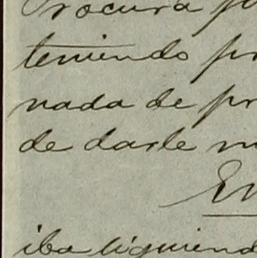 Procura p
teniendo pr
nada de pr
de darle m
En
iba siguiend